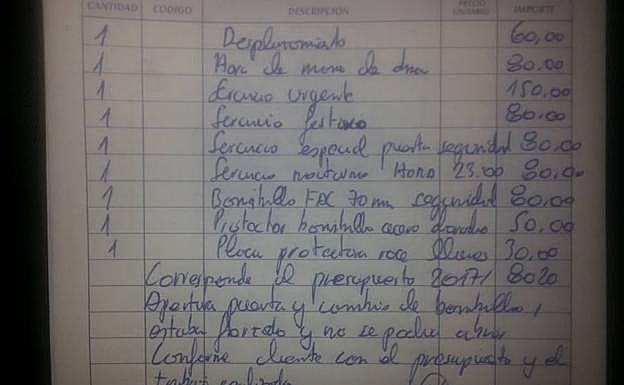 CANTIDAD CODIGO DESCRIPCION PRECIO UNITARIO IMPORTE
1 Desplazamiento 60,00
1 Hora de mano de obra 80.00
1 Servicio urgente 150,00
1 Servicio festivo 80.00
1 Servicio especial puerta seguridad 80,00
1 Servicio nocturno Hora 23:00 80,00
1 Bombillo FAC 70 mm seguridad 80,00
1 Protector bombillo acero 50.00
1 Placa protectora 30.00
Corresponde al presupuesto 20171 8020
Apertura puerta y cambio de bombillo,
estaba forzado y no se podia abrir
Conforme cliente con el presupuesto y el